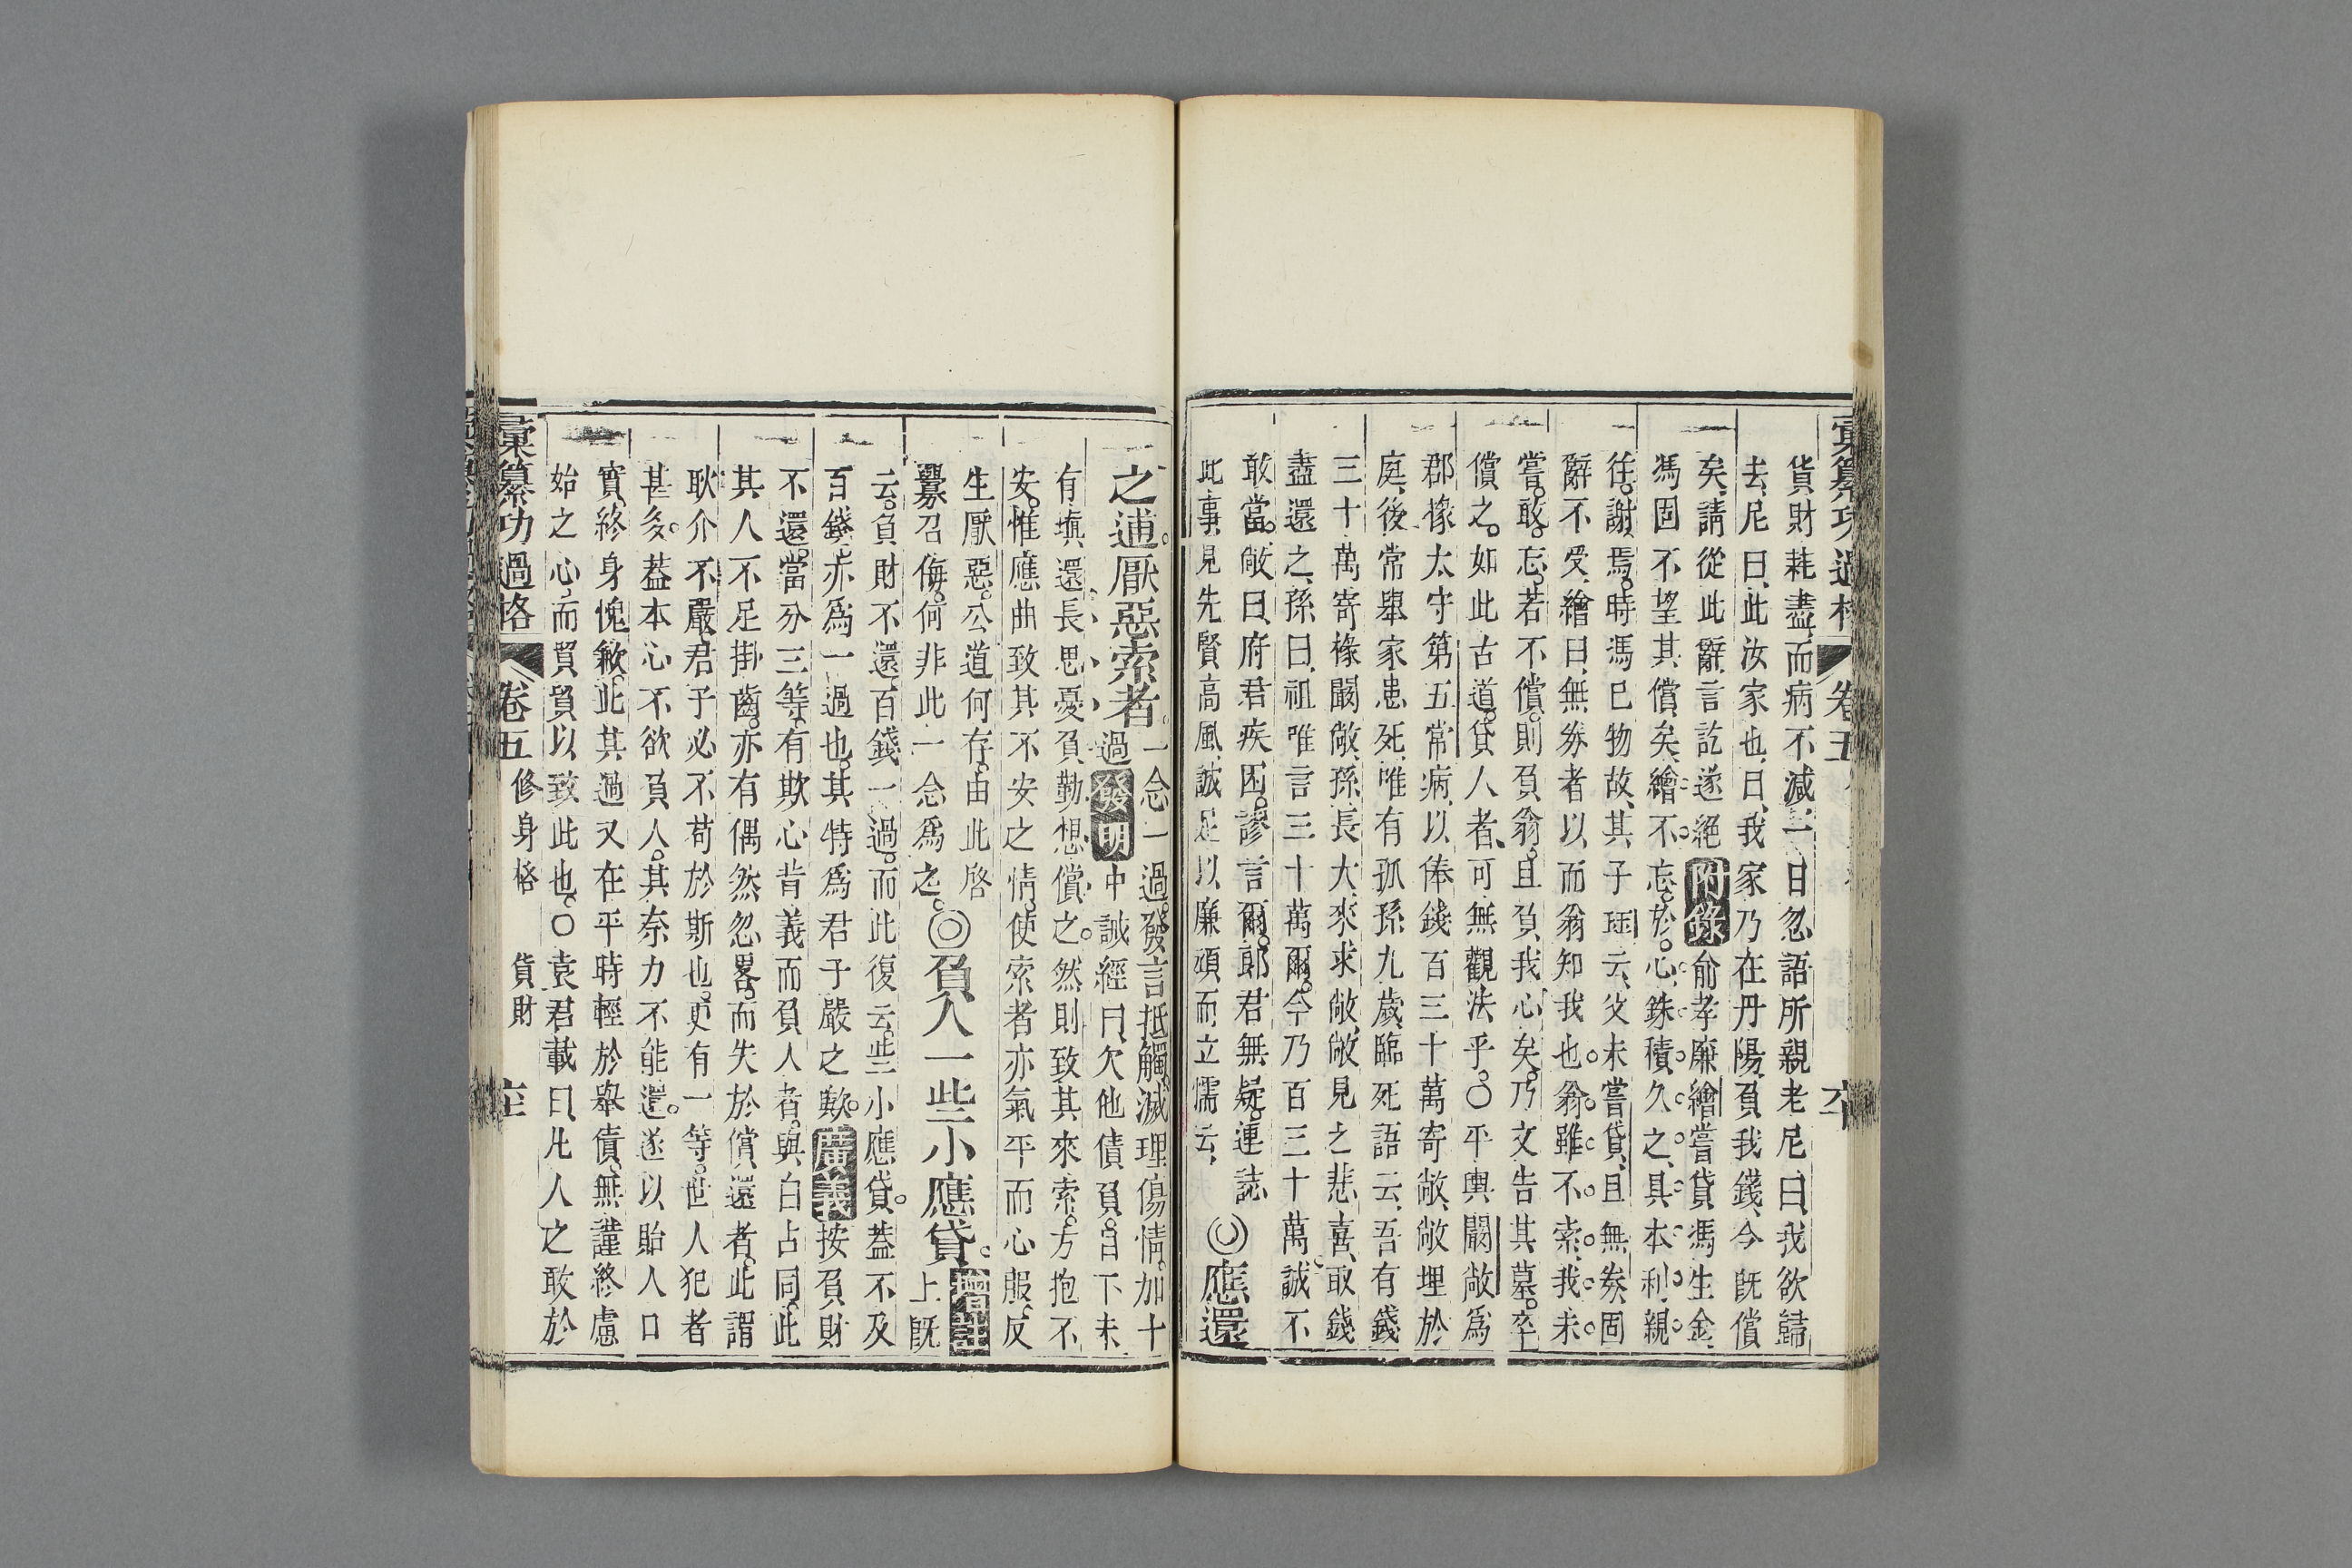 彙纂功過格 卷五 六十
貨財耗盡而病不減一日忽語所親老尼曰我欲歸
去尼曰此汝家也曰我家乃在丹陽負我錢今既償
矣請從此辭言訖遂絕 附錄 俞孝廉繪嘗貸馮生金
馮固不望其償矣繪不忘於心銖積久之具本利親
往謝焉時馮已物故其子云父未嘗貸且無券固
辭不受繪曰無券者以而翁知我也翁雖不索我未
嘗敢忘若不償則負翁且負我心矣乃文告其墓卒
償之如此古道貸人者可無觀法乎○平輿闞敞爲
郡椽太守第五常病以俸錢百三十萬寄敞敞埋於
庭後常舉家患死唯有孤孫九歲臨死語云吾有錢
三十萬寄椽闞敞孫長大來求敞敞見之悲喜取錢
盡還之孫曰祖唯言三十萬爾今乃百三十萬誠不
敢當敞曰府君疾困謬言爾郎君無疑連誌
此事見先賢高風誠足以廉頑而立懦云 ◎應還
之逋厭惡索者 一念一過發言抵觸滅理傷情加十
過 發明 中誠經曰欠他債負自下未
有塡還長思憂負勤想償之然則致其來索方抱不
安惟應曲致其不安之情使索者亦氣平而心服反
生厭惡公道何存由此啓
釁召侮何非此一念爲之 ◎負人一些小應貸 增註 上旣
云負財不還百錢一過而此復云些小應貸葢不及
百錢亦爲一過也其特爲君子嚴之歟 廣義 按負財
不還當分三等有欺心背義而負人者與白占同此
其人不足掛齒亦有偶然忽畧而失於償還者此謂
耿介不嚴君子必不苟於斯也更有一等世人犯者
甚多葢本心不欲負人其奈力不能還遂以貽人口
實終身愧歉此其過又在平時輕於舉債無謹終慮
始之心而貿貿以致此也○袁君載曰凡人之敢於
彙纂功過格 卷五 修身格 貨財